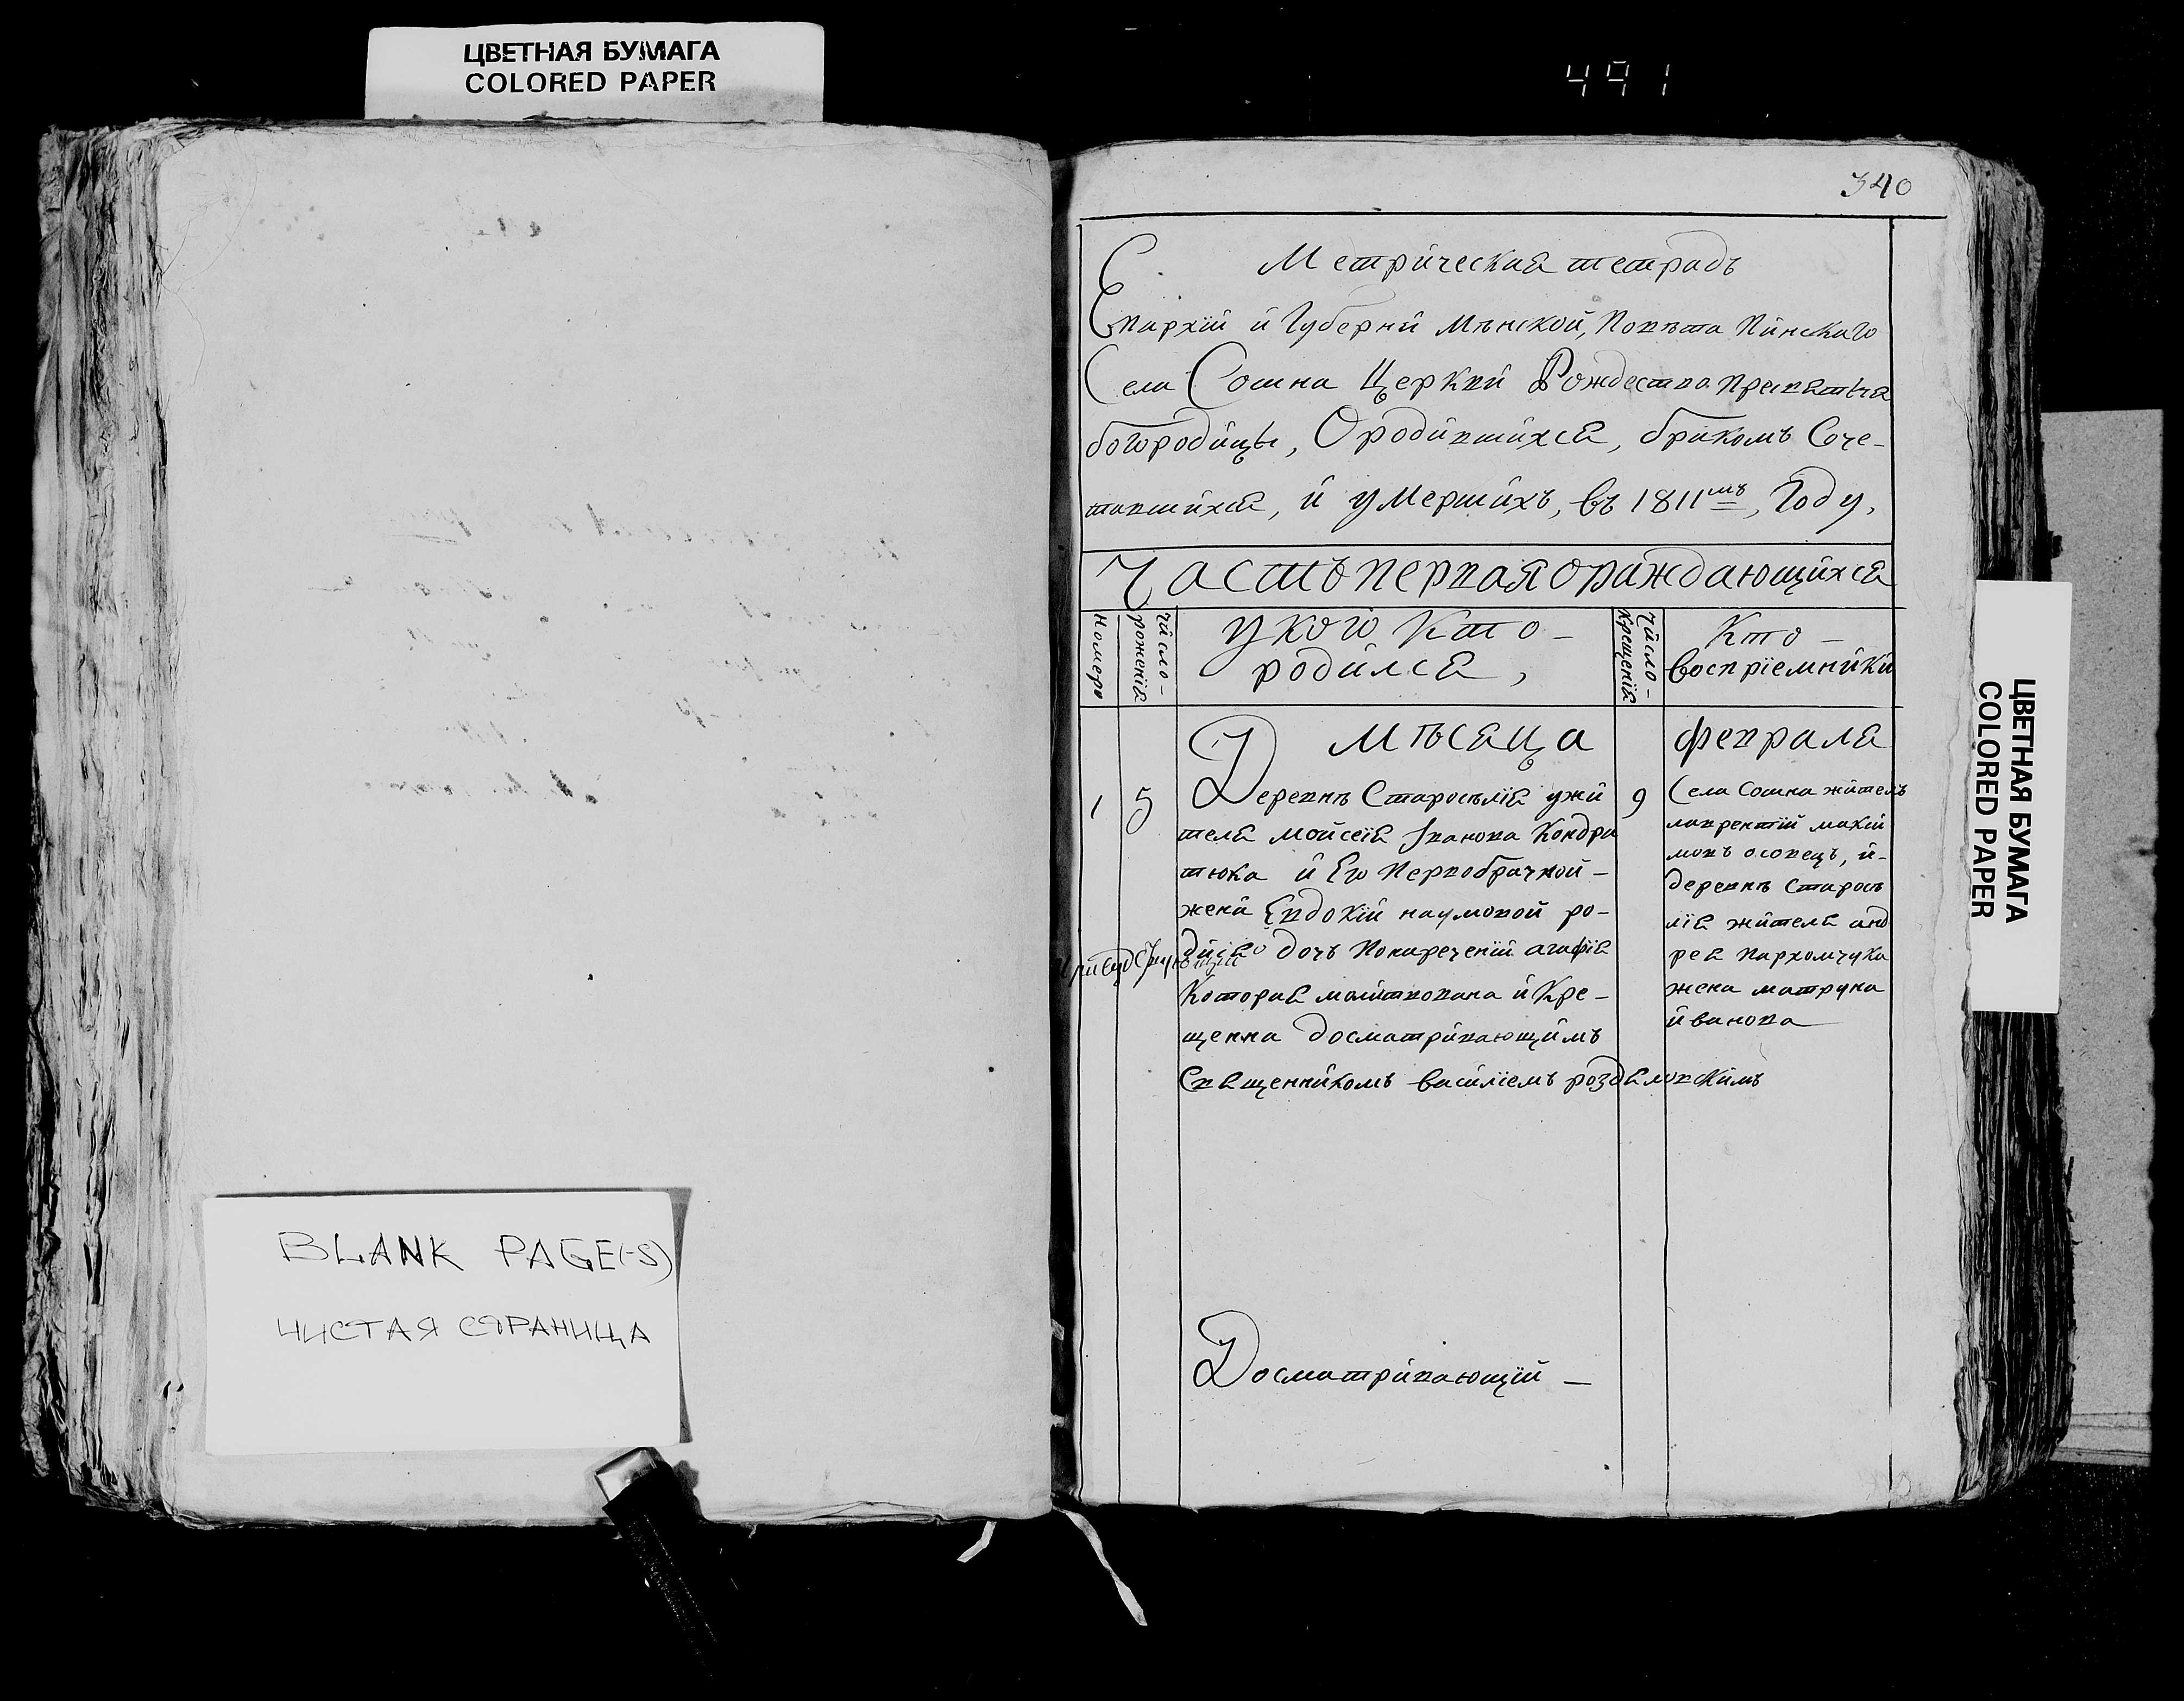 ЦВЕТНАЯ БУМАГА
COLORED PAPER
491
340
Метрическая тетрадь
Епархїй и Губерни Мѣнской, Повѣта Пинскаго
Села Сошна Церкви Рождества Пресвятыя
богородицы, О родившихся, бракомъ Соче-
тавшихся, и умершихъ, въ 1811мъ, Году,
Часть первая о раждающихся
Номеръ
Число-
рожения
У кого Кто-
родился,
Число-
крещенїя
Кто-
воспрїемники
Мѣсяца
февраля
1
5
Деревнѣ Старосѣлїя ужи
теля мойсеїя Іванова Кондра
тюка и Его Первобрачной-
жени Евдокїи наумовой ро-
дочь Понареченїй агафїя
Которая молитвована и Кре-
щенна досматривающимъ
Священникомъ василїемъ роздяловскимъ
9
Села Сошна житель
лаврентїй макси
мовъ осовецъ, и-
деревнѣ старосѣ
лїя жителя анд
рея пархомчука
жена матруна
иванова
Досматривающїй -
BLANK PAGE(-S)
ЧИСТАЯ СТРАНИЦА
ЦВЕТНАЯ БУМАГА
COLORED PAPER